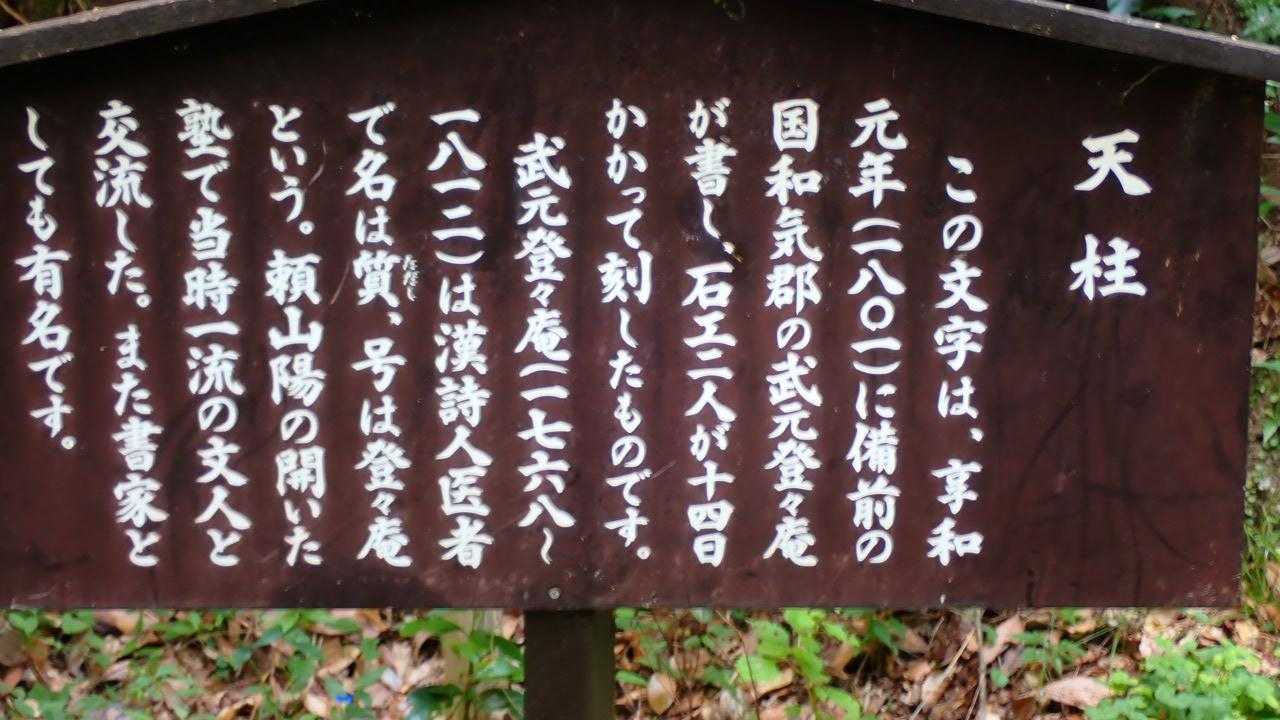 天柱
この文字は、享和
元年(一八〇一)に備前の
国和気郡の武元登々庵
が書し、石工二人が十四日
かかって刻したものです。
武元登々庵(一七六八～
一八一二)は漢詩人医者
で名は質、号は登々庵
ただし
という。頼山陽の開いた
塾で当時一流の文人と
交流した。また書家と
しても有名です。